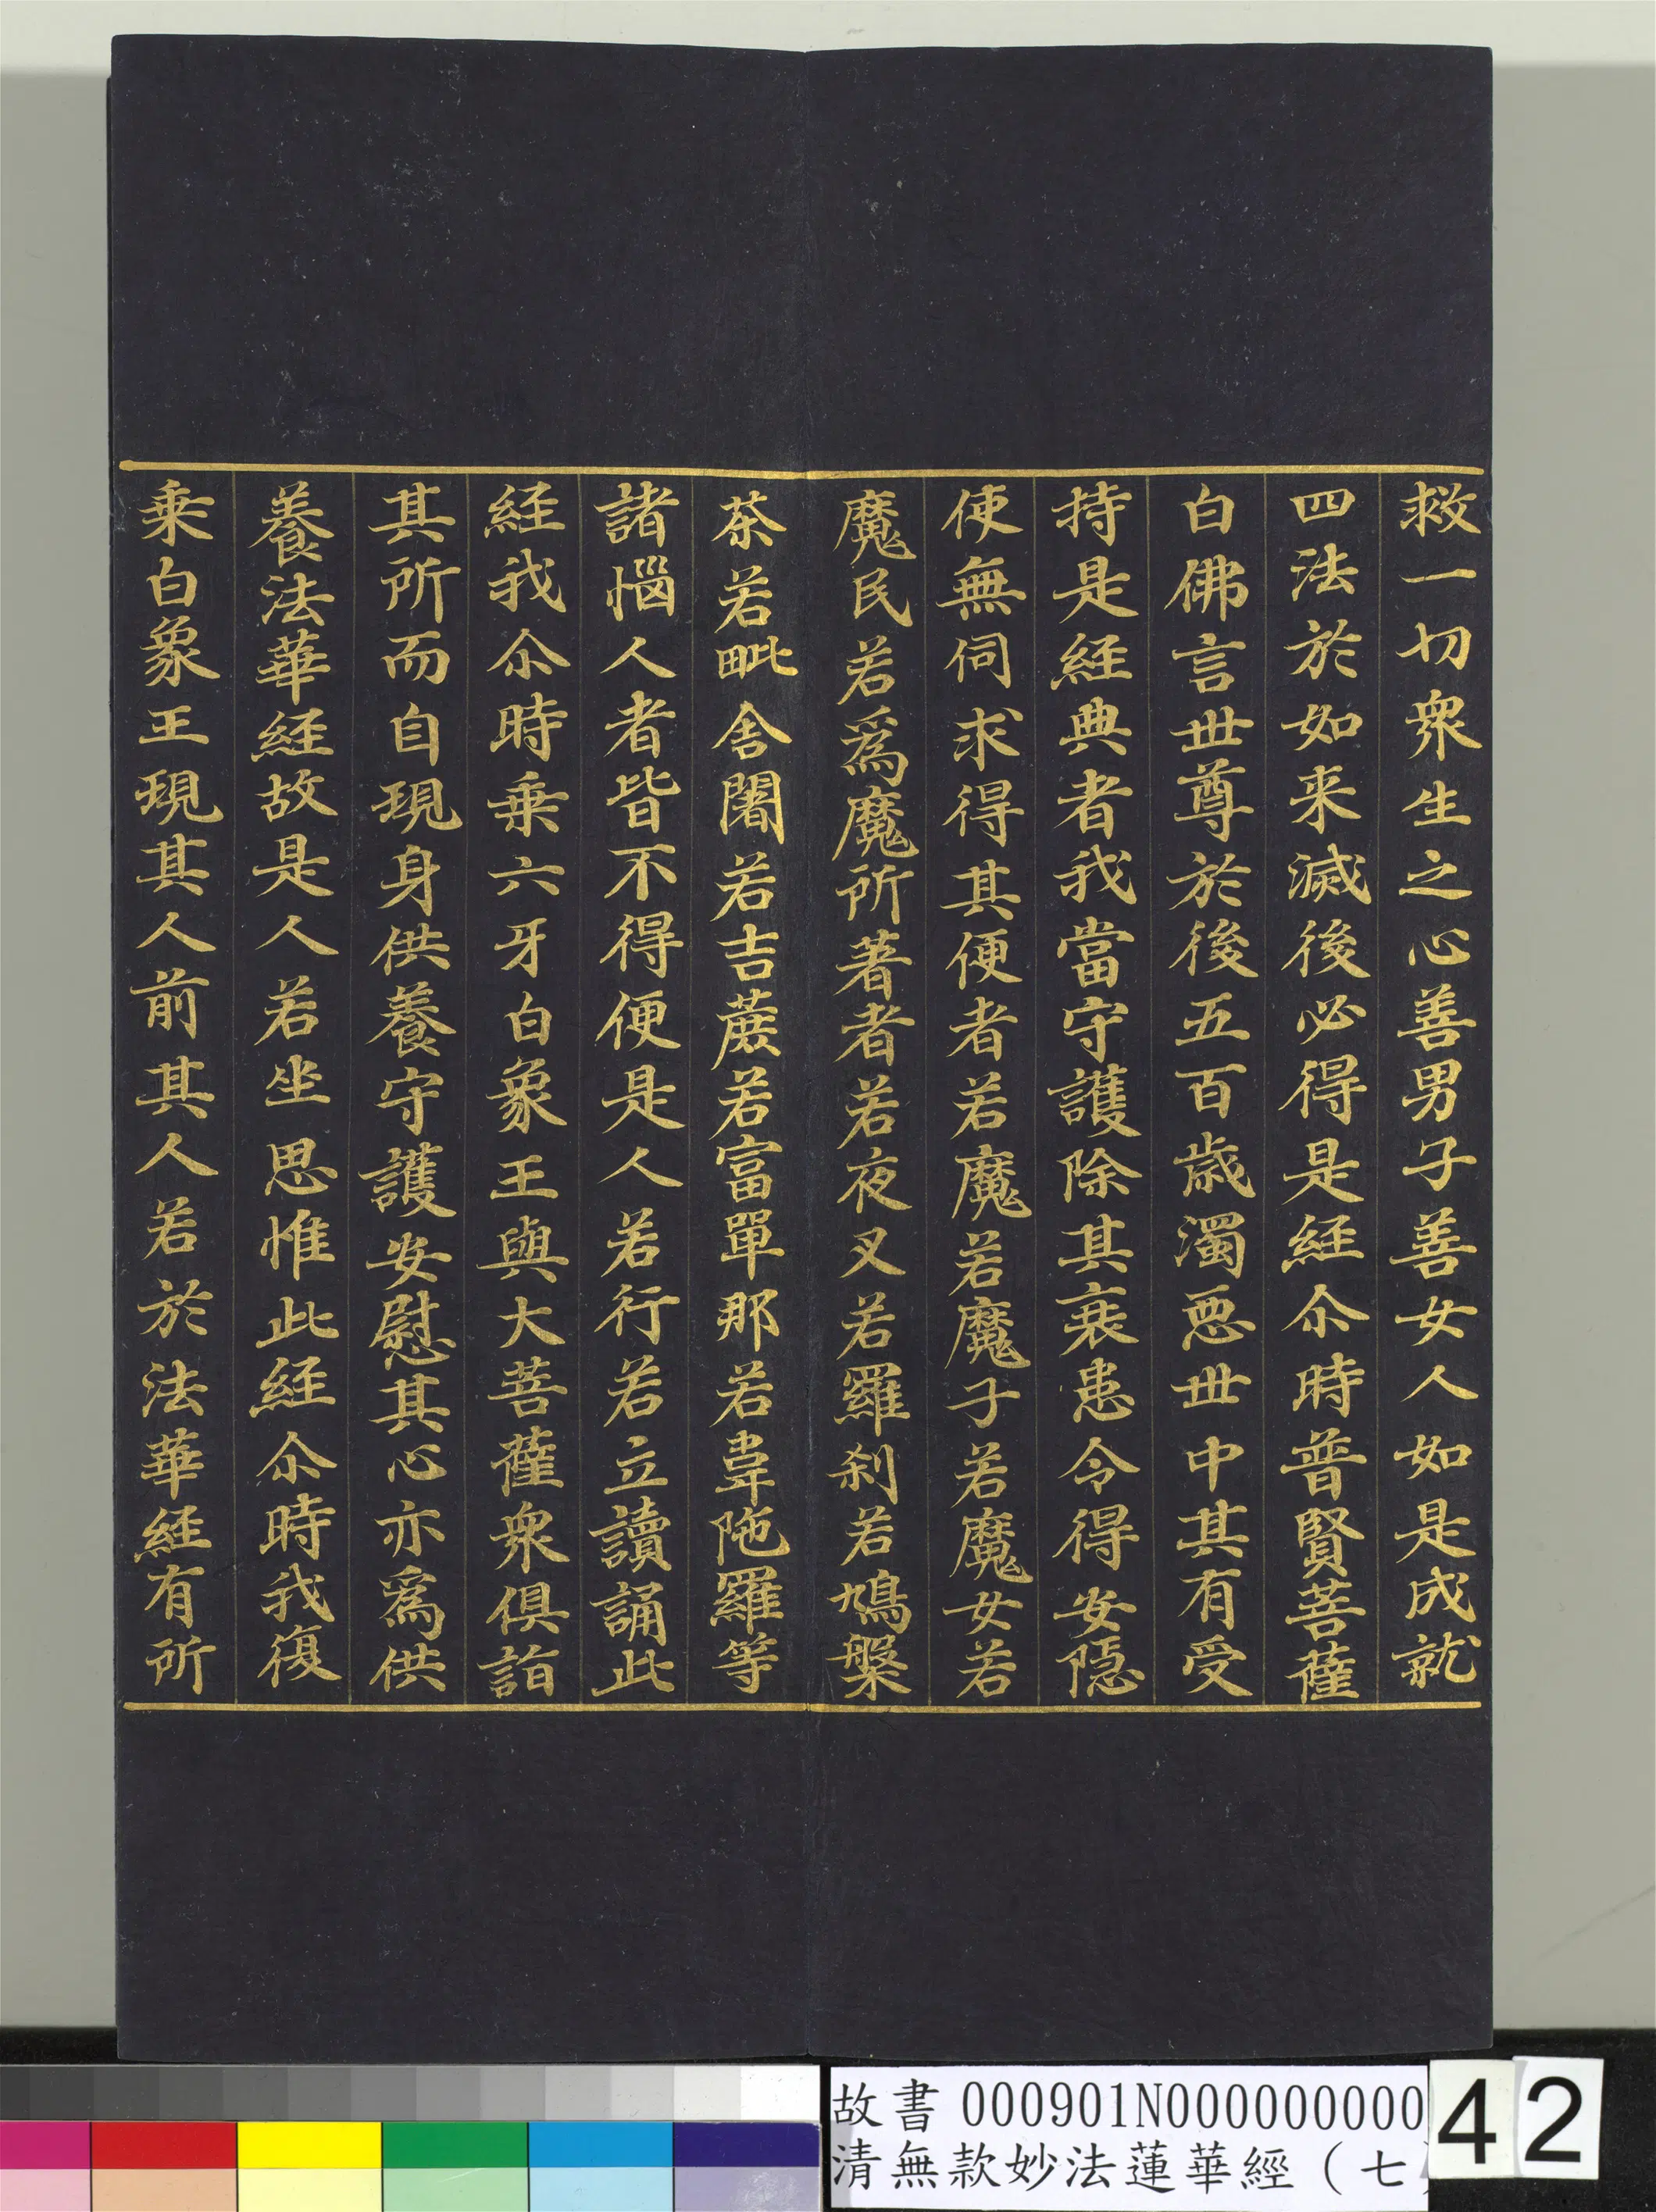 救一切衆生之心善男子善女人如是成就
四法於如来滅後必得是経尒時普賢菩薩
白佛言世尊於後五百歳濁惡世中其有受
持是経典者我當守護除其衰患令得安隠
使無伺求得其便者若魔若魔子若魔女若
魔民若爲魔所著者若夜叉若羅刹若鳩槃
茶若毗舎闍若吉蔗若富單那若韋陁羅等
諸惱人者皆不得便是人若行若立讀誦此
経我尒時乗六牙白象王與大菩薩衆俱詣
其所而自現身供養守護安慰其心亦爲供
養法華経故是人若坐思惟此経尒時我復
乗白象王現其人前其人若於法華経有所
故書 000901N000000000
清無款妙法蓮華經（七）
42